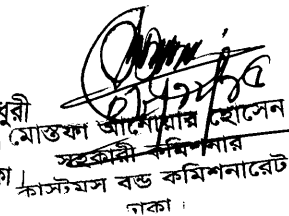 ধুরী
মোস্তফা আনোয়ার হোসেন
সহকারী কমিশনার
কাস্টমস বন্ড কমিশনারেট
ঢাকা ।